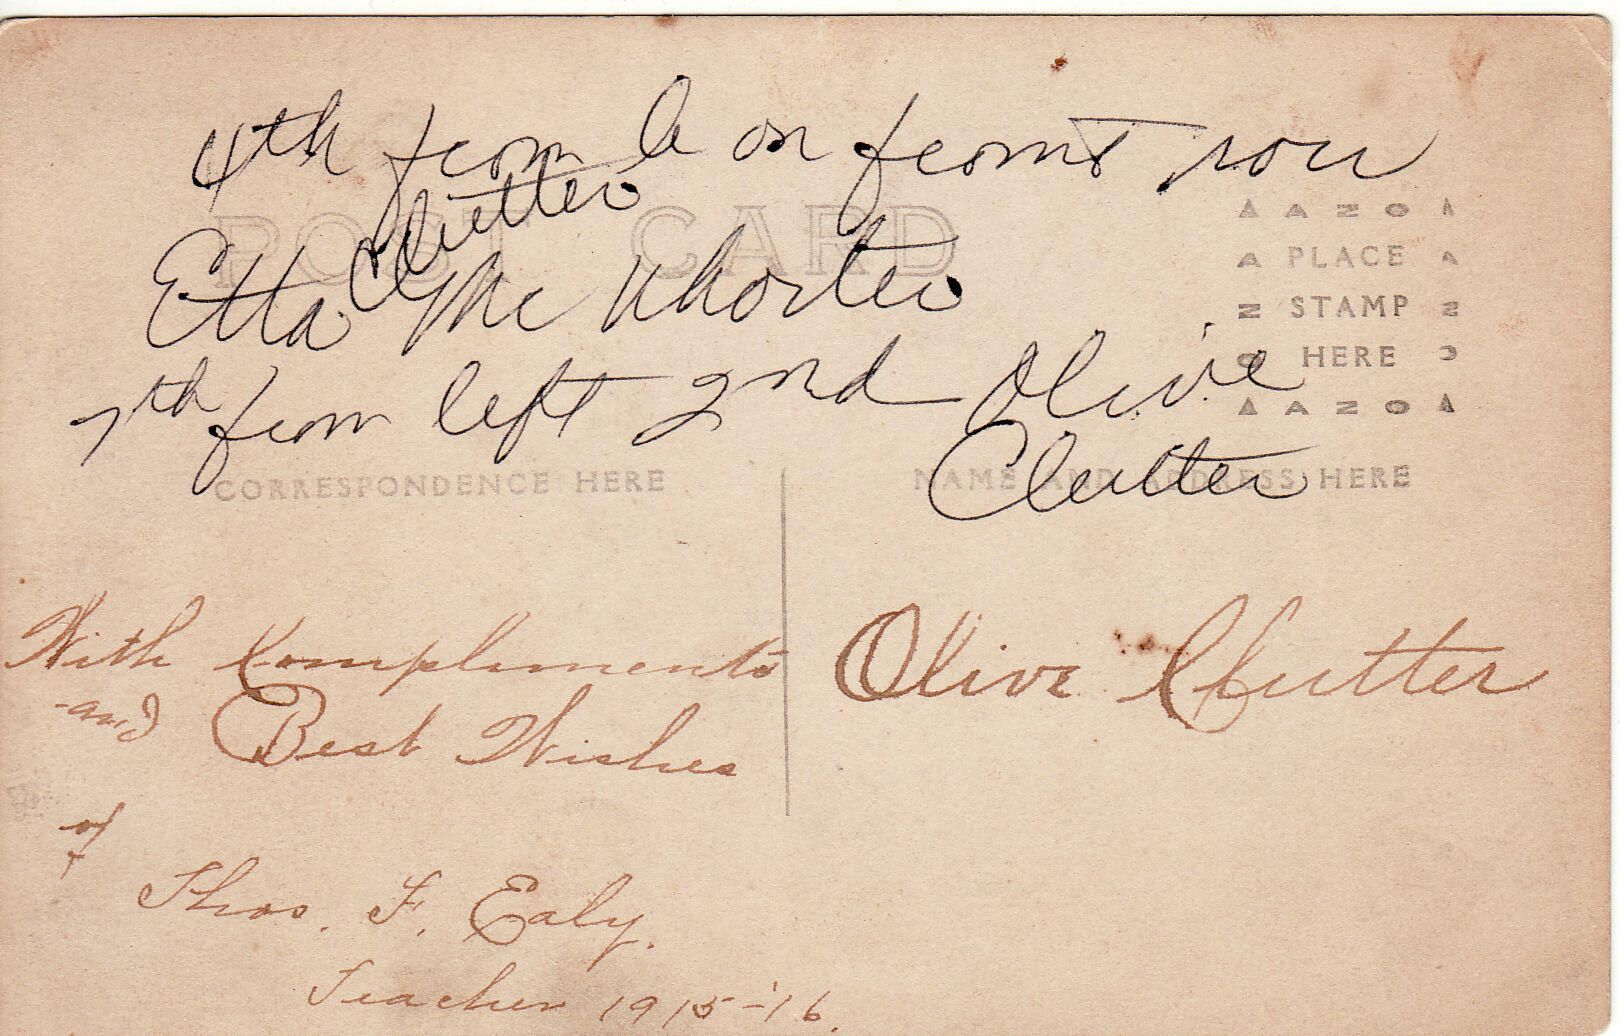 4th from L on front row
Clutter
POST CARD
Etta McWhorter
7th from left 2nd Olive
Clutter
AZO
PLACE
STAMP
HERE
AZO
CORRESPONDENCE HERE
NAME AND ADDRESS HERE
With Kompliments
and Best Wishes
of
Thos. F. Ealy.
Teacher 1915-'16.
Olive Clutter